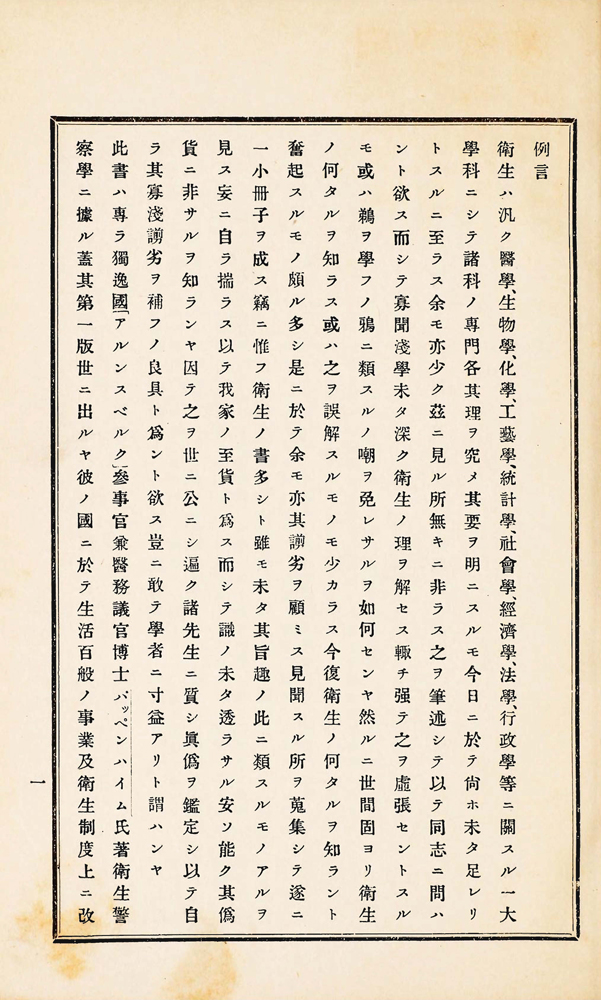 例言
衛生ハ汎ク醫學、生物學、化學、工藝學、統計學、社會學、經濟學、法學、行政學等ニ關スル一大
學科ニシテ諸科ノ專門各其理ヲ究メ其要ヲ明ニスルモ今日ニ於テ尙ホ未タ足レリ
トスルニ至ラス余モ亦少ク玆ニ見ル所無キニ非ラス之ヲ筆述シテ以テ同志ニ問ハ
ント欲ス而シテ寡聞淺學未タ深ク衛生ノ理ヲ解セス輙チ强テ之ヲ虛張セントスル
モ或ハ鵜ヲ學フノ鴉ニ類スルノ嘲ヲ免レサルヲ如何センヤ然ルニ世間固ヨリ衛生
ノ何タルヲ知ラス或ハ之ヲ誤解スルモノモ少カラス今復衛生ノ何タルヲ知ラント
奮起スルモノ頗ル多シ是ニ於テ余モ亦其謭劣ヲ顧ミス見聞スル所ヲ蒐集シテ遂ニ
一小冊子ヲ成ス竊ニ惟フ衛生ノ書多シト雖モ未タ其旨趣ノ此ニ類スルモノアルヲ
見ス妄ニ自ラ揣ラス以テ我家ノ至貨ト爲ス而シテ識ノ未タ透ラサル安ソ能ク其僞
貨ニ非サルヲ知ランヤ因テ之ヲ世ニ公ニシ遍ク諸先生ニ質シ眞僞ヲ鑑定シ以テ自
ラ其寡淺謭劣ヲ補フノ良具ト爲ント欲ス豈ニ敢テ學者ニ寸益アリト謂ハンヤ
此書ハ專ラ獨逸國「アルンスベルク」參事官兼醫務議官博士パッペンハイム氏著衛生警
察學ニ據ル蓋其第一版世ニ出ルヤ彼ノ國ニ於テ生活百般ノ事業及衛生制度上ニ改
一